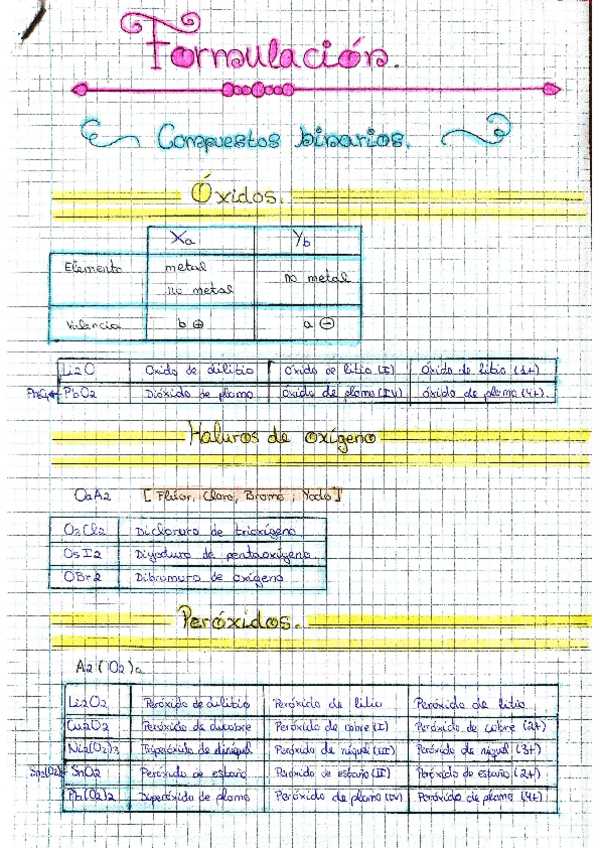 Formulación.
Compuestos binarios.
Óxidos.
Xa Yb
Elemento metal no metal no metal
Valencia b ⊕ a ⊖
Li2O Óxido de dilitio Óxido de litio (I) Óxido de litio (1+)
PbO2 Dióxido de plomo Óxido de plomo (IV) Óxido de plomo (4+)
Haluros de oxígeno
OaA2 [Flúor, Cloro, Bromo, Yodo]
O3Cl2 Dicloruro de trioxígeno
O5I2 Diyoduro de pentaoxígeno
OBr2 Dibromuro de oxígeno
Peróxidos.
A2(O2)a
Li2O2 Peróxido de dilitio Peróxido de litio Peróxido de litio
Cu2O2 Peróxido de dicobre Peróxido de cobre (I) Peróxido de cobre (2+)
Ni2(O2)3 Triperóxido de diníquel Peróxido de níquel (III) Peróxido de níquel (3+)
SnO2 Peróxido de estaño Peróxido de estaño (II) Peróxido de estaño (2+)
Pb(O2)2 Diperóxido de plomo Peróxido de plomo (IV) Peróxido de plomo (4+)